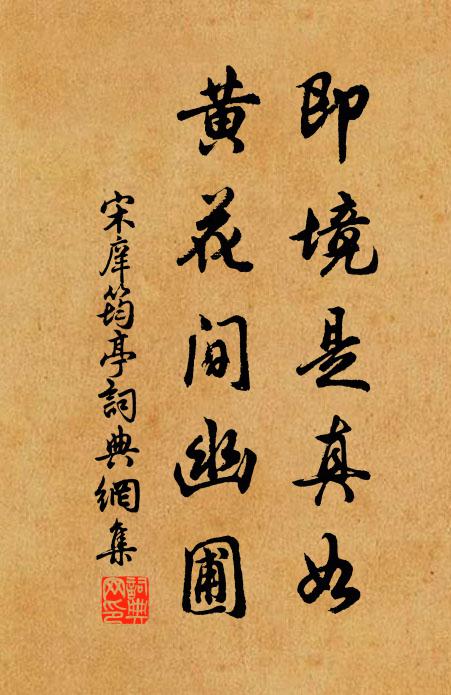 即境是真如
黄花间幽圃
宋庠筠亭詞典網集
詞典网印